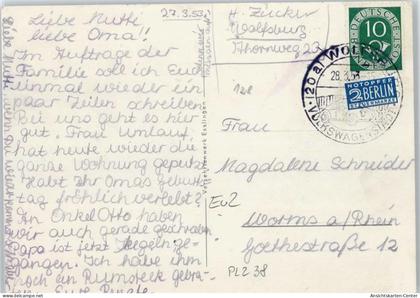 27.3.53
Liebe Mutti
liebe Oma!
Im Auftrage der
Familie soll ich Euch
einmal wieder ein
paar Zeilen schreiben
Bei uns geht es hier
gut. Frau Umlauf
hat heute wieder die
ganze Wohnung geputzt
Habt Ihr Omas Geburts-
tag fröhlich verlebt?
An Onkel Otto haben
wir auch gerade geschrieben
Papa ist jetzt kegeln ge-
gangen. Ich habe ihm
noch ein Rumsteck gebra-
H. Zucker
Wolfsburg
Thornweg 23
DEUTSCHE
10
28.3.53
NOTOPFER
2 BERLIN
STEUERMARKE
VOLKSWAGEN
Frau
Magdalene Schneider
Worms a/Rhein
Goethestraße 12
Eu2
PLZ 38
Esslingen
www.Ansichtskarten-Center.de